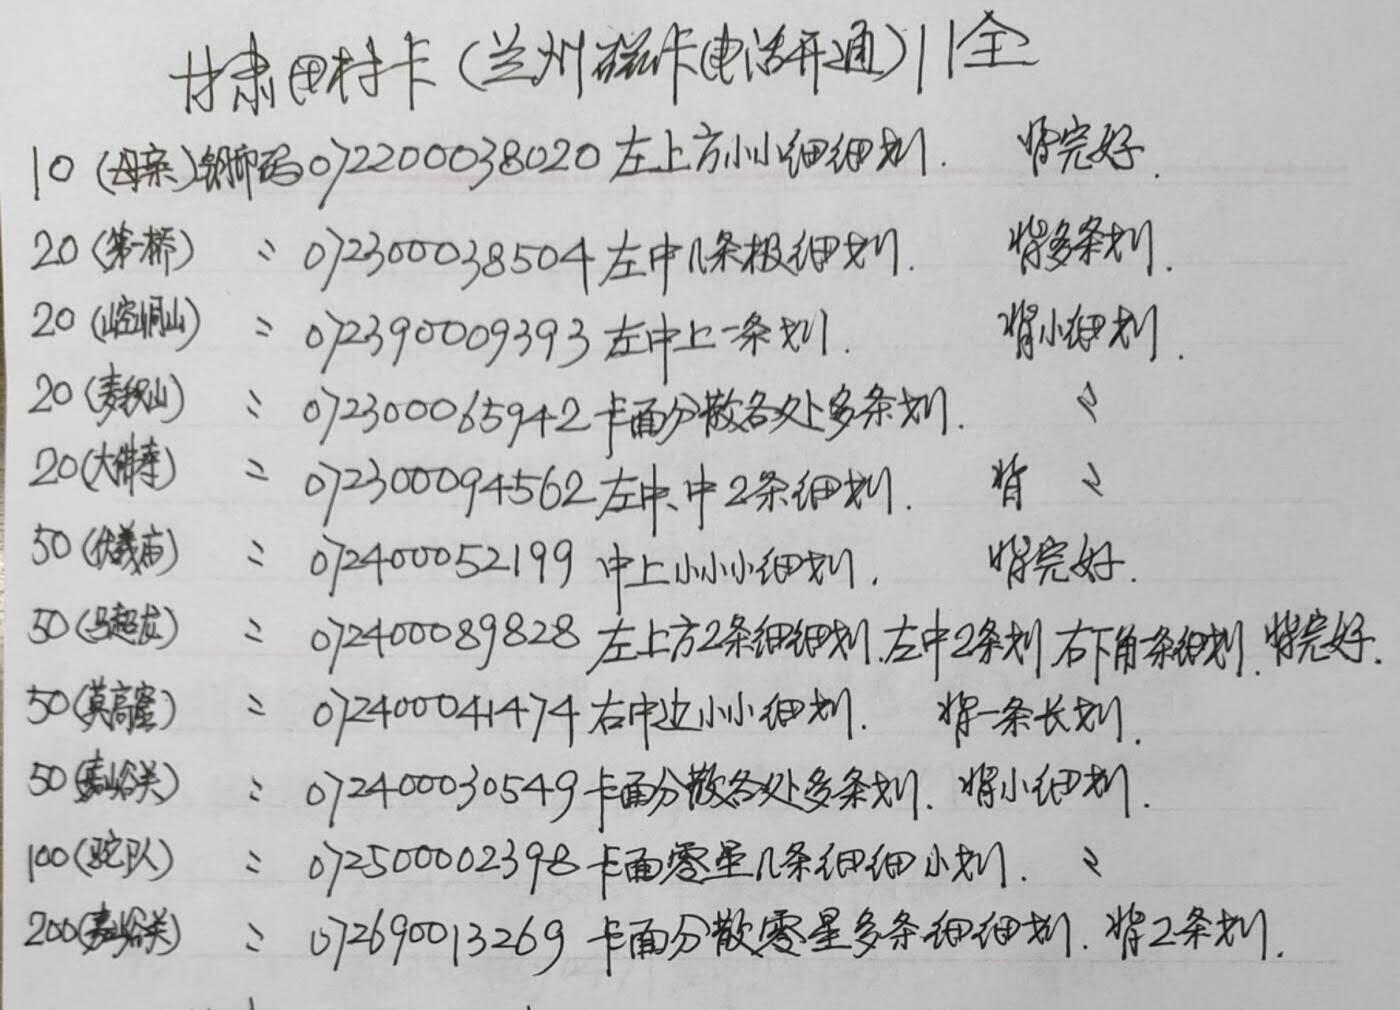 甘肃田村卡（兰州磁卡电话开通）11全
10（母亲）钢印码072200038020左上方小小细细划. 背完好.
20（第一桥） 〃 072300038504左中几条极细划. 背多条划.
20（崆峒山） 〃 072390009393左中上一条划. 背小细划.
20（麦积山） 〃 072300065942卡面分散各处多条划. 〃
20（大佛寺） 〃 072300094562左中、中2条细划. 背 〃
50（伏羲庙） 〃 072400052199 中上小小小细划. 背完好.
50（马超龙） 〃 072400089828 左上方2条细细划.左中2条划.右下角一条细划. 背完好.
50（莫高窟） 〃 072400041474右中边小小细划. 背一条长划.
50（嘉峪关） 〃 072400030549卡面分散各处多条划. 背小细划.
100（驼队） 〃 072500002398卡面零星几条细细小划. 〃
200（嘉峪关） 〃 072690013269 卡面分散零星多条细细划. 背2条划.